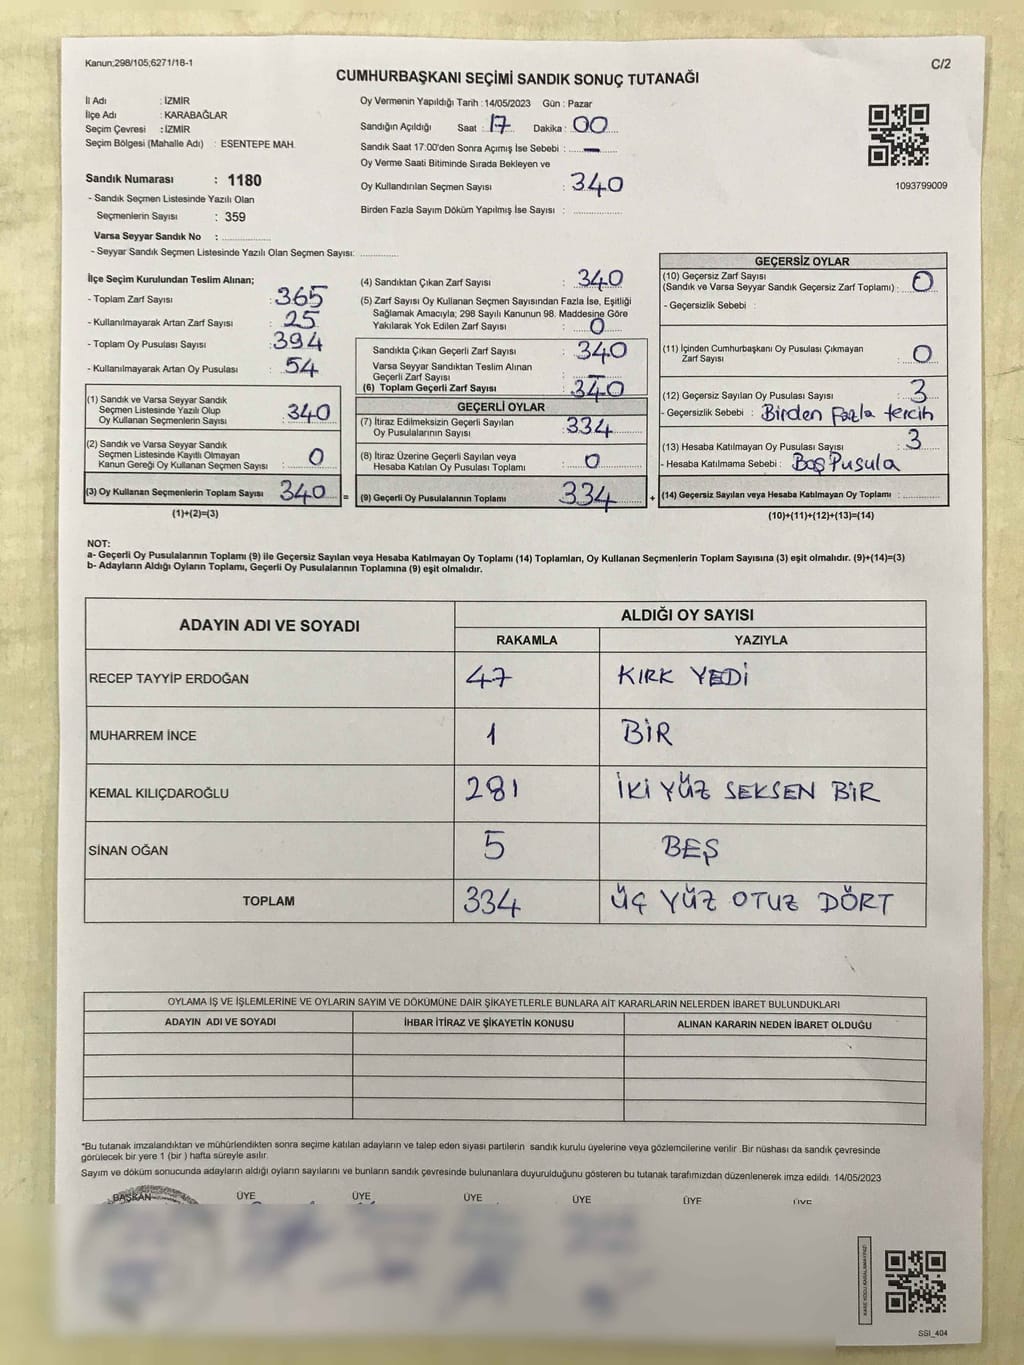 Kanun;298/105;6271/18-1
C/2
CUMHURBAŞKANI SEÇİMİ SANDIK SONUÇ TUTANAĞI
İl Adı : İZMİR
İlçe Adı : KARABAĞLAR
Seçim Çevresi : İZMİR
Seçim Bölgesi (Mahalle Adı) : ESENTEPE MAH.
Sandık Numarası : 1180
- Sandık Seçmen Listesinde Yazılı Olan
Seçmenlerin Sayısı : 359
Varsa Seyyar Sandık No : ..................
- Seyyar Sandık Seçmen Listesinde Yazılı Olan Seçmen Sayısı: .............
Oy Vermenin Yapıldığı Tarih : 14/05/2023 Gün : Pazar
Sandığın Açıldığı Saat : 17 Dakika : 00
Sandık Saat 17:00'den Sonra Açımış İse Sebebi : —
Oy Verme Saati Bitiminde Sırada Bekleyen ve
Oy Kullandırılan Seçmen Sayısı : 340
Birden Fazla Sayım Döküm Yapılmış İse Sayısı : ................
1093799009
İlçe Seçim Kurulundan Teslim Alınan;
- Toplam Zarf Sayısı : 365
- Kullanılmayarak Artan Zarf Sayısı : 25
- Toplam Oy Pusulası Sayısı : 394
- Kullanılmayarak Artan Oy Pusulası : 54
(1) Sandık ve Varsa Seyyar Sandık
Seçmen Listesinde Yazılı Olup
Oy Kullanan Seçmenlerin Sayısı : 340
(2) Sandık ve Varsa Seyyar Sandık
Seçmen Listesinde Kayıtlı Olmayan
Kanun Gereği Oy Kullanan Seçmen Sayısı : 0
(3) Oy Kullanan Seçmenlerin Toplam Sayısı 340 =
(1)+(2)=(3)
(4) Sandıktan Çıkan Zarf Sayısı : 340
(5) Zarf Sayısı Oy Kullanan Seçmen Sayısından Fazla İse, Eşitliği
Sağlamak Amacıyla; 298 Sayılı Kanunun 98. Maddesine Göre
Yakılarak Yok Edilen Zarf Sayısı : 0
Sandıkta Çıkan Geçerli Zarf Sayısı : 340
Varsa Seyyar Sandıktan Teslim Alınan
Geçerli Zarf Sayısı : —
(6) Toplam Geçerli Zarf Sayısı : 340
GEÇERLİ OYLAR
(7) İtiraz Edilmeksizin Geçerli Sayılan
Oy Pusulalarının Sayısı : 334
(8) İtiraz Üzerine Geçerli Sayılan veya
Hesaba Katılan Oy Pusulası Toplamı : 0
(9) Geçerli Oy Pusulalarının Toplamı 334 +
GEÇERSİZ OYLAR
(10) Geçersiz Zarf Sayısı
(Sandık ve Varsa Seyyar Sandık Geçersiz Zarf Toplamı) : 0
- Geçersizlik Sebebi :
(11) İçinden Cumhurbaşkanı Oy Pusulası Çıkmayan
Zarf Sayısı : 0
(12) Geçersiz Sayılan Oy Pusulası Sayısı : 3
- Geçersizlik Sebebi : Birden fazla tercih
(13) Hesaba Katılmayan Oy Pusulası Sayısı : 3
- Hesaba Katılmama Sebebi : Boş Pusula
(14) Geçersiz Sayılan veya Hesaba Katılmayan Oy Toplamı : ............
(10)+(11)+(12)+(13)=(14)
NOT:
a- Geçerli Oy Pusulalarının Toplamı (9) ile Geçersiz Sayılan veya Hesaba Katılmayan Oy Toplamı (14) Toplamları, Oy Kullanan Seçmenlerin Toplam Sayısına (3) eşit olmalıdır. (9)+(14)=(3)
b- Adayların Aldığı Oyların Toplamı, Geçerli Oy Pusulalarının Toplamına (9) eşit olmalıdır.
ADAYIN ADI VE SOYADI
ALDIĞI OY SAYISI
RAKAMLA YAZIYLA
RECEP TAYYİP ERDOĞAN 47 KIRK YEDİ
MUHARREM İNCE 1 BİR
KEMAL KILIÇDAROĞLU 281 İKİ YÜZ SEKSEN BİR
SİNAN OĞAN 5 BEŞ
TOPLAM 334 ÜÇ YÜZ OTUZ DÖRT
OYLAMA İŞ VE İŞLEMLERİNE VE OYLARIN SAYIM VE DÖKÜMÜNE DAİR ŞİKAYETLERLE BUNLARA AİT KARARLARIN NELERDEN İBARET BULUNDUKLARI
ADAYIN ADI VE SOYADI İHBAR İTİRAZ VE ŞİKAYETİN KONUSU ALINAN KARARIN NEDEN İBARET OLDUĞU
*Bu tutanak imzalandıktan ve mühürlendikten sonra seçime katılan adayların ve talep eden siyasi partilerin sandık kurulu üyelerine veya gözlemcilerine verilir. Bir nüshası da sandık çevresinde
görülecek bir yere 1 (bir ) hafta süreyle asılır.
Sayım ve döküm sonucunda adayların aldığı oyların sayılarını ve bunların sandık çevresinde bulunanlara duyurulduğunu gösteren bu tutanak tarafımızdan düzenlenerek imza edildi. 14/05/2023
BAŞKAN ÜYE ÜYE ÜYE ÜYE ÜYE ÜYE
SSI_404